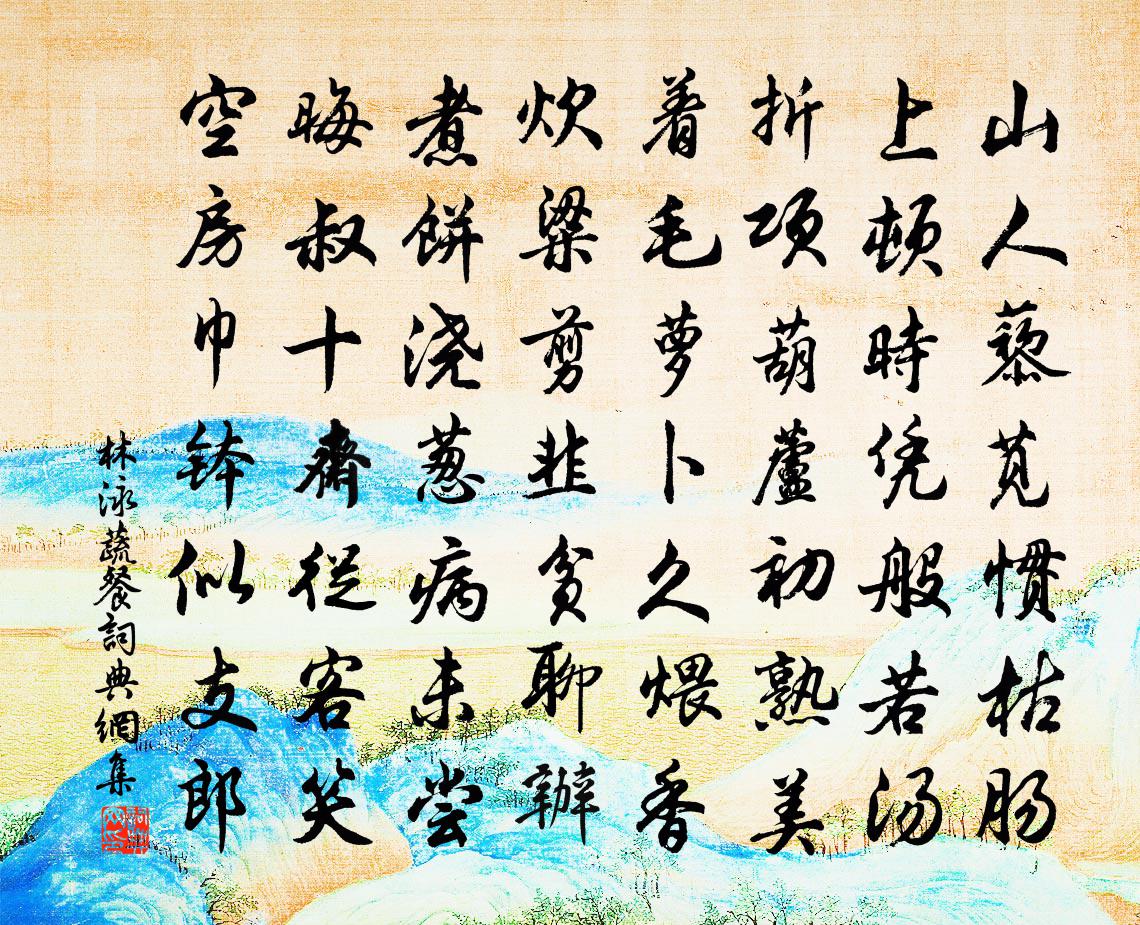 山人藜苋惯枯肠
上顿時凭般若汤
折项葫蘆初熟美
着毛萝卜久煨香
炊粱剪韭贫聊辦
煮餅浇葱病未尝
晦叔十齋從客笑
空房巾钵似支郎
林泳蔬餐詞典網集